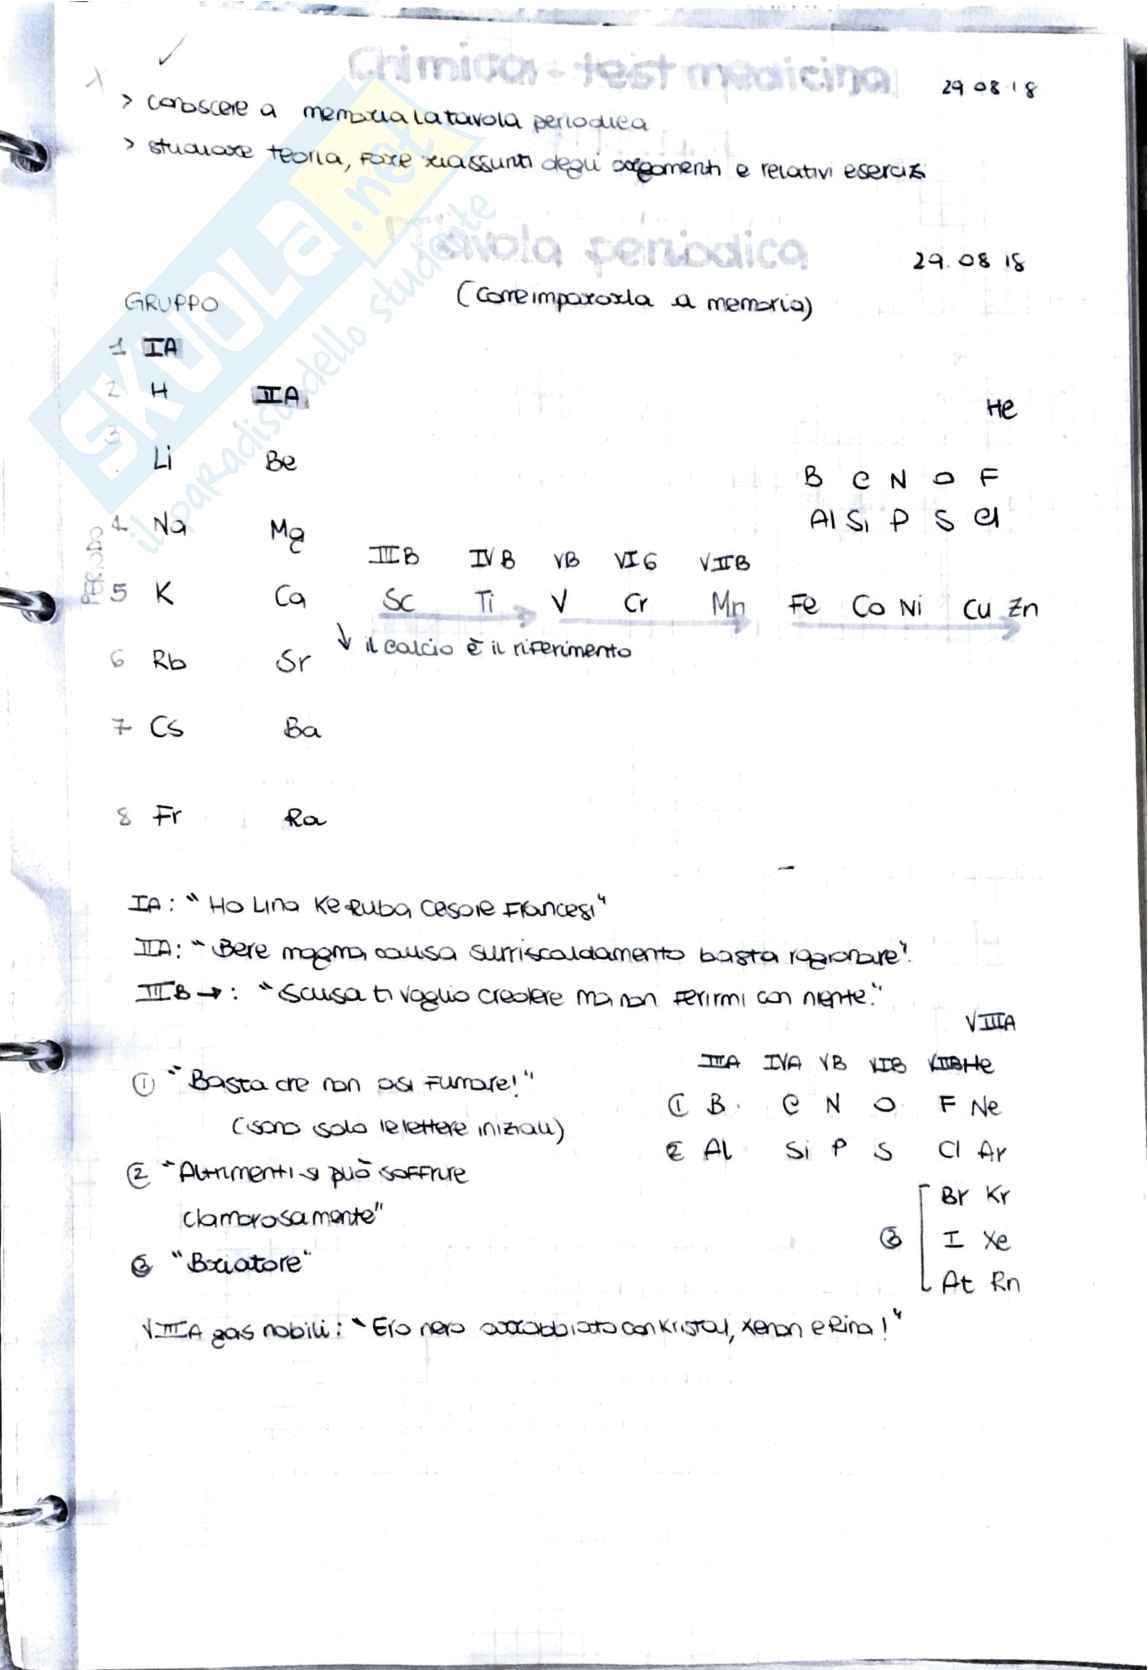 Chimica - test medicina
29 08 18
> conoscere a memoria la tavola periodica
> studiare teoria, fare riassunti degli argomenti e relativi esercizi
Tavola periodica
29.08 18
GRUPPO (come impararla a memoria)
1 IA
2 H IIA He
3
Li Be B C N O F
4 Na Mg Al Si P S Cl
PERIODO
IIIB IVB VB VI6 VIIB
5 K Ca Sc Ti V Cr Mn Fe Co Ni Cu Zn
↓ il calcio è il riferimento
6 Rb Sr
7 Cs Ba
8 Fr Ra
IA: "Ho Lina Ke Ruba Cesare Francesi"
IIA: "Bere magma causa surriscaldamento basta ragionare".
IIIB →: "Scusa ti voglio credere ma non ferirmi con niente."
VIIIA
IIIA IVA VB VIB VIIB He
① "Basta che non osi Fumare!"
(sono solo le lettere iniziali)
① B C N O F Ne
② Al Si P S Cl Ar
② "Altrimenti si può soffrire
clamorosamente"
③ "Briatore"
Br Kr
③ I Xe
At Rn
VIIIA gas nobili: "Ero nero arrabbiato con Kristal, Xenon e Rina!"
SKUOLA.net
il paradiso dello studente